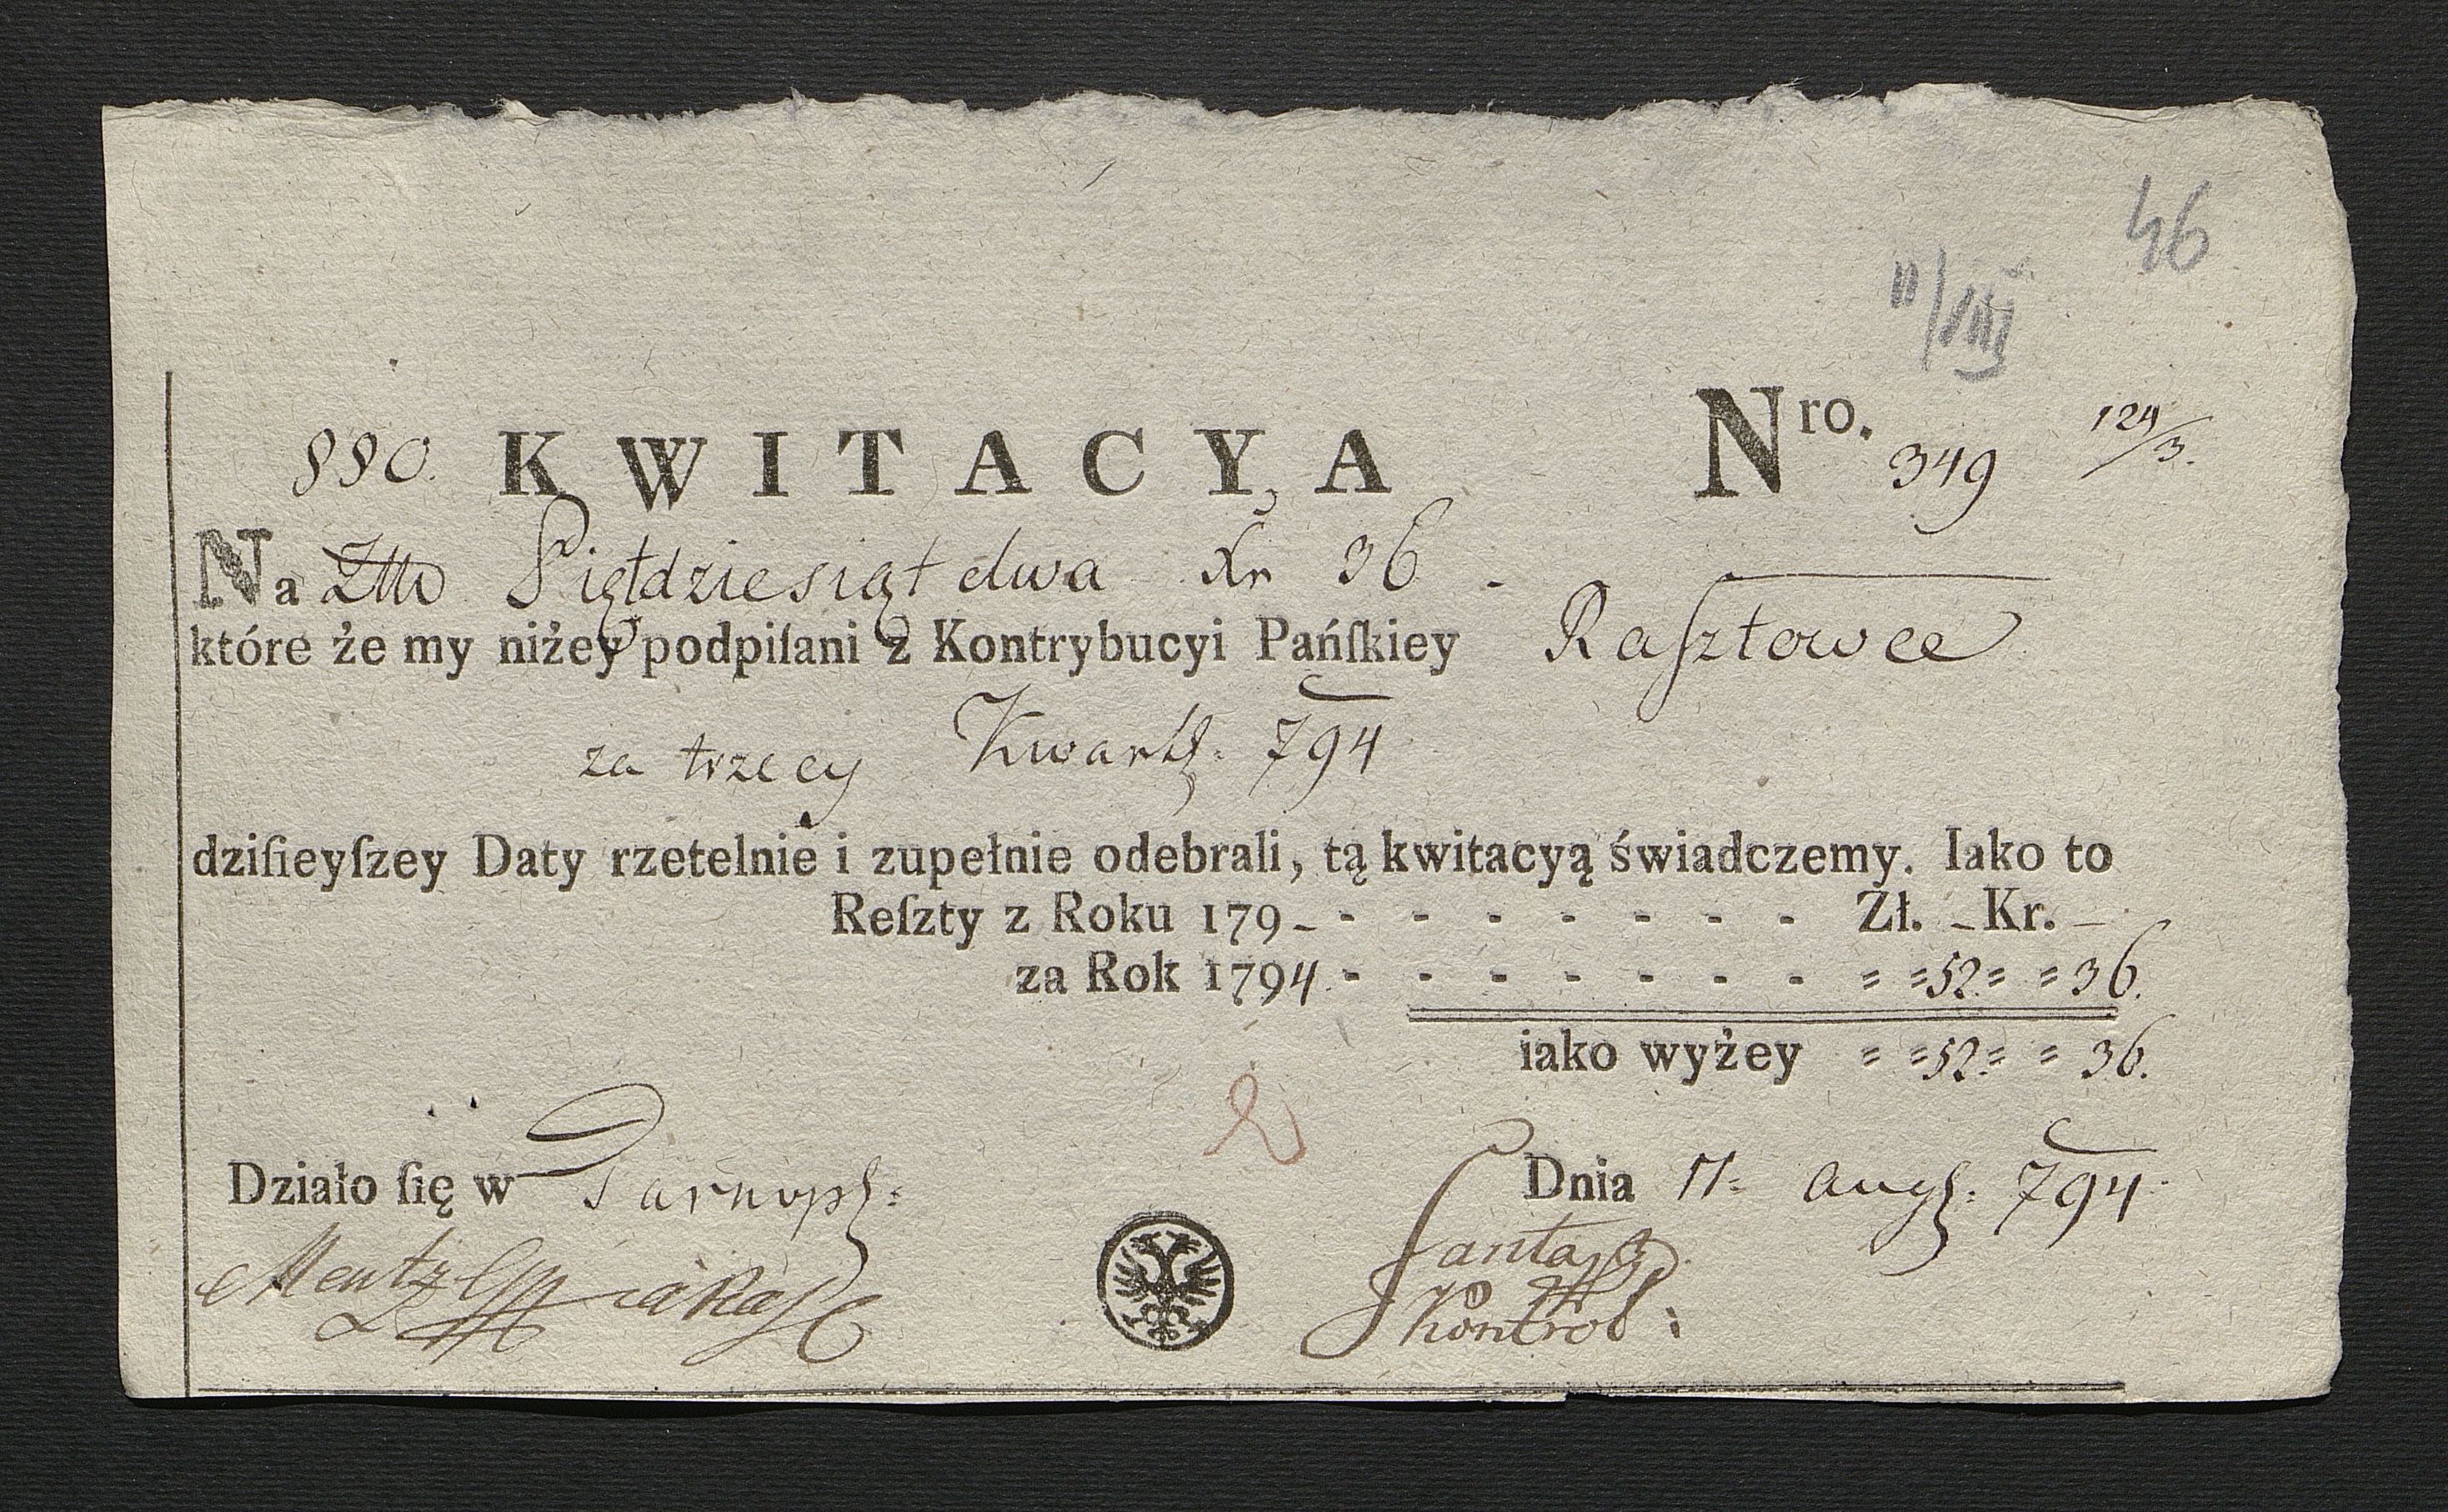 46
II/VIII
880. KWITACYA Nro. 349 124/3.
Na Złto Pięćdziesiąt dwa Xr 36 -
które że my niżey podpiſani z Kontrybucyi Pańſkiey Raſztowce
za trzecy Kwartł. 794
dziſieyſzey Daty rzetelnie i zupełnie odebrali, tą kwitacyą świadczemy. Iako to
Reſzty z Roku 179- - - - - - - - Zł. - Kr. -
za Rok 1794. - - - - - - - = =52= = 36.
iako wyżey = =52= = 36.
Działo ſię w Tarnopl: Dnia 11= Augſ: 794
Kontrol: